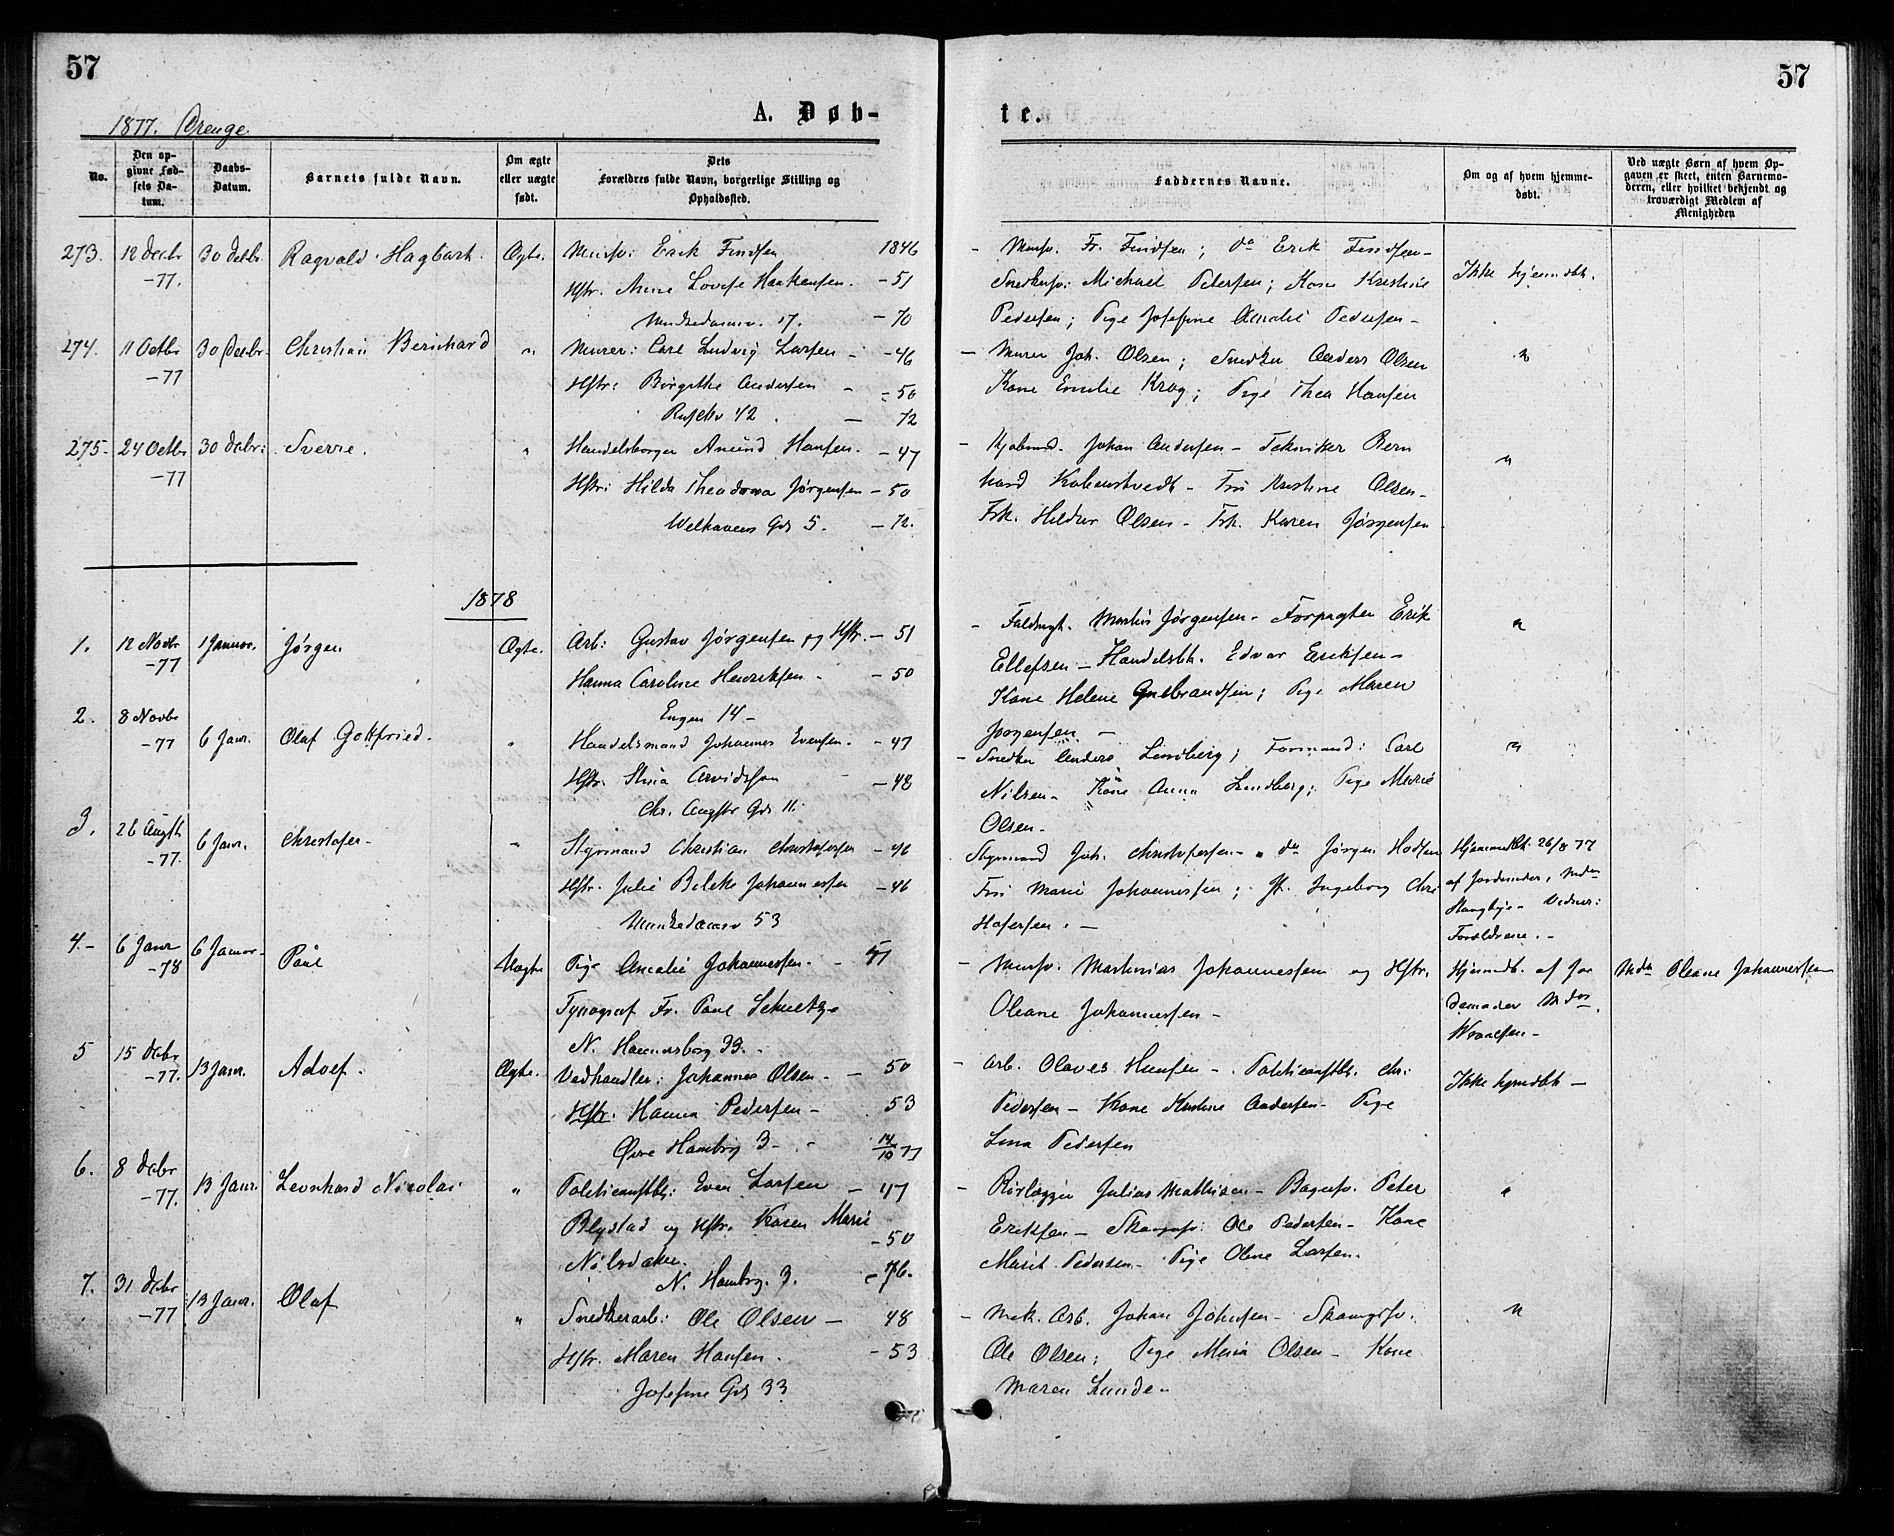 57
57
A. Døb-
te.
1877. Drenge.
No.
Den op-
givne Fød-
sels Da-
tum.
Daabs-
Datum.
Barnets fulde Navn.
Om ægte
eller uægte
født.
Dets
Forældres fulde Navn, borgerlige Stilling og
Opholdssted.
Faddernes Navne.
Om og af hvem hjemme-
døbt.
Ved uægte Børn af hvem Op-
gaven er skeet, enten Barnemo-
deren, eller hvilket bekjendt og
troværdigt Medlem af
Menigheden
273. 12 Decbr 30 Decbr. Ragvald Hagbart. Ægte. Mursv: Erik Findsen 1846
-77.
Hstr. Anne Lovise Haakensen. - 51
Munkedamsv. 17. - 70
- Mursv. Fr. Findsen; do Erik Findsen -
Snedkersv: Michael Pedersen; Kone Kristine
Pedersen; Pige Josefine Amalie Pedersen -
Ikke hjemmdbt.
274. 11 Octbr 30 Decbr. Christian Bernhard " Murer: Carl Ludvig Larsen - - 46
-77
Hstr: Birgitte Andersen - - 50
42. - 72
- Murer Joh. Olsen; Snedker Anders Olsen
Kone Emilie Krog; Pige Thea Hansen
"
275- 24 Octbr 30 Decbr: Sverre. " Handelsborger Amund Hansen. - 47
-77
Hstr: Hilda Theodora Jørgensen - 50
Welhavens Gd 5. - 72.
- Kjøbmd. Johan Andersen - Tekniker Bern
hard - Fru Kristine Olsen -
Frk. Hildur Olsen - Frk. Karen Jørgensen
"
1878
1. 12 Novbr 1 Januar. Jørgen Ægte. Arb: Gustav Jørgensen og Hstr. - 51
-77
Hanna Caroline Henriksen - - 50
Engen 14 -
- Martin Jørgensen - Forpagter Erik
Ellefsen - Handelsbt. Edvar Eriksen -
Kone Helene Gulbrandsen; Pige Maren
Jørgensen -
"
2. 8 Novbr 6 Janr. Olaf Gottfried. " Handelsmand Johannes Evensen. - 47
-77
Hstr. Stina Arvidsson - - 48
Chr. Augsts Gd 11.
- Snedker Anders Lindberg; Formand: Carl
Nilsen - Kone Anna Lindberg; Pige Marie
Olsen -
"
3. 26 Augst 6 Janr. Christofer - " Styrmand Christian Christofersen - 46
-77.
Hstr. Julie Johannessen - 46
Munkedamsv 53
Styrmand Joh. Christofersen - " do Jørgen
Fru Marie Johannessen; Ingeborg Chris
tofersen. -
Hjemmedbt. 26/8 77
af Jordemoder, Mdm
Vidner:
Forældrene. -
4. - 6 Janr 6 Januar - Paul Uægte Pige Amalie Johannessen - - 51
-78
Typograf Fr. Paul Schultze
N. Hammersborg 33. -
- Mursv. Martinius Johannessen og Hstr.
Oleane Johannessen -
Hjemmedbt. af Jor
demoder Mdm.
Mdm Oleane Johannessen
5 15 Decbr 13 Janr. Adolf. Ægte. Vedhandler: Johannes Olsen - - 50
-77.
Hstr. Hanna Pedersen - 53
Øvre Hambrg 3 - 14/10 77
- Arb. Olaves Hansen - Politieansttbt. Chr:
Pedersen - Kone Kristine Andersen - Pige
Lina Pedersen
Ikke hjmdbt -
6. 8 Decbr 13 Janr. Leonhard Nicolai " Politieansttbt: Even Larsen - 47
-77.
Blystad og Hstr. Karen Marie - 50
N. Hambrg. 3. - 76.
- Rørlægger Julius Mathisen - Bagersv. Peter
Eriksen - Skomgsv: Ole Pedersen - Kone
Marit Pedersen - Pige Oline Larsen.
"
7. 31 Decbr 13 Janr. Olaf " Snedkerarb: Ole Olsen - 48
-77
Hstr. Maren Hansen. - 53
Josefine Gd 33
- Mek. Arb. Johan Johnsen - Skomgsv.
Ole Olsen; Pige Maria Olsen - Kone
Maren Lunde -
"